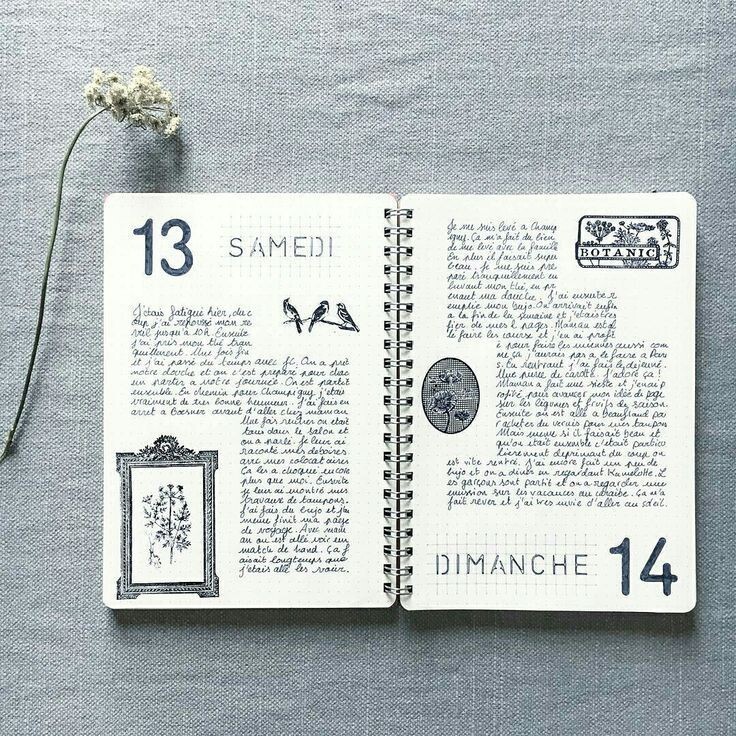 13 SAMEDI
J'étais fatigué hier, du c
oup j'ai repoussé mon ré
veil jusqu'à 10h. Ensuite
j'ai pris mon thé tran
quillement. Une fois fini
et j'ai passé du temps avec JC. On a pris
notre douche et on c'est préparé pour chac
un partir à notre journée. On est partit
ensemble. En chemin pour Champigny, j'étais
vraiment de très bonne humeur. J'ai fais en
arret a Boesner avant d'aller chez maman.
Une fois rentrée on était
tous dans le salon et
on a parlé. Je leur ai
raconté mes déboires
avec mes colocataires
Ça les a choqué encore
plus que moi. Ensuite
je leur ai montré mes
travaux de tampons.
J'ai fais du bujo et j'ai
même finit ma page
de voyage. Avec mam
an on est allé voir un
match de hand. Ça f
aisait longtemps que
j'étais allé les voir.
Je me suis levé a Champ
igny. Ça m'a fait du bien
de me levé avec la famille
En plus il faisait super
beau. Je me suis pré
paré tranquillement en
buvant mon thé, en pr
enant ma douche. J'ai ensuite r
emplie mon bujo. On arrivait enfin
a la fin de la semaine et j'étais très
fier de mes pages. Maman est al
lé faire les course et j'en ai profit
é pour faire les miennes aussi com
me ça j'aurais pas a le faire a Pari
s. En rentrant j'ai fais le déjeuné.
Une purée de carotte. J'adore ça!
Maman a fait une sieste et j'en ai p
rofité pour avancer mon idée de page
sur les légumes et fruits de saison.
Ensuite on est allé a beaugrand pou
r acheter du vernis pour mes tampons
Mais même si il faisait beau et
qu'on était ensemble c'était partic
lièrement déprimant du coup on
est vite rentré. J'ai encore fait un peu de
bujo et on a diné en regardant Kamelotte. L
es garçons sont partit et on a regardé une
émission sur les vacances au caraïbe. Ça m'a
fait rêver et j'ai très envie d'aller au soleil.
BOTANIC
DIMANCHE 14